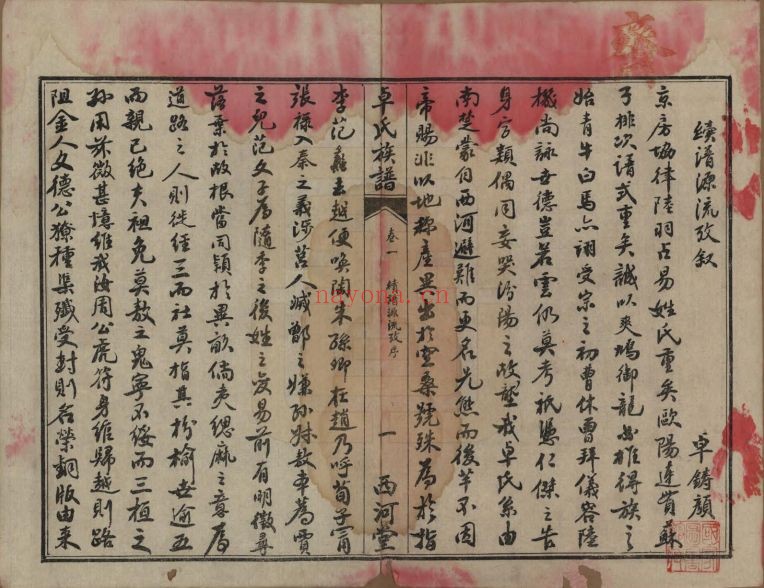 續譜源流攷叙
卓鑄顏
京房協律陸羽占易姓氏重矣歐陽達實蘇
子排次譜式重矣誠以爽鳩御龍必推得族之
始青牛白馬亦詡受宗之初曹休曹拜儀容陸
機尚詠世德豈若雲仍莫考祇憑仁傑之告
身宗類偶同妄哭汾陽之故壟哉卓氏系由
南楚蒙自西河避難而更名先熊而後芈不因
帝賜非以地稱產異出於空桑號殊局於指
卓氏族譜
卷一
續譜源流攷序
一
西河堂
李范蠡去越便喚陶朱孫卿在趙乃呼荀子寗
張祿入秦之義涉莒人滅鄫之嫌孫妹敖本蒍賈
之兒范文子為隨季之後姓之变易前有明徵尋
落葉於故根嘗同穎於異畝倘夷緦麻之章為
道路之人則徙經三而社莫指其枌榆世逾五
而親已絕夫祖免莫敖之鬼寧不餒而三桓之
孫用茲微甚憶維我汝周公虎符身綰歸越則路
阻金人文德公獠種渠殲受封則名榮銅版由来
nayona.cn